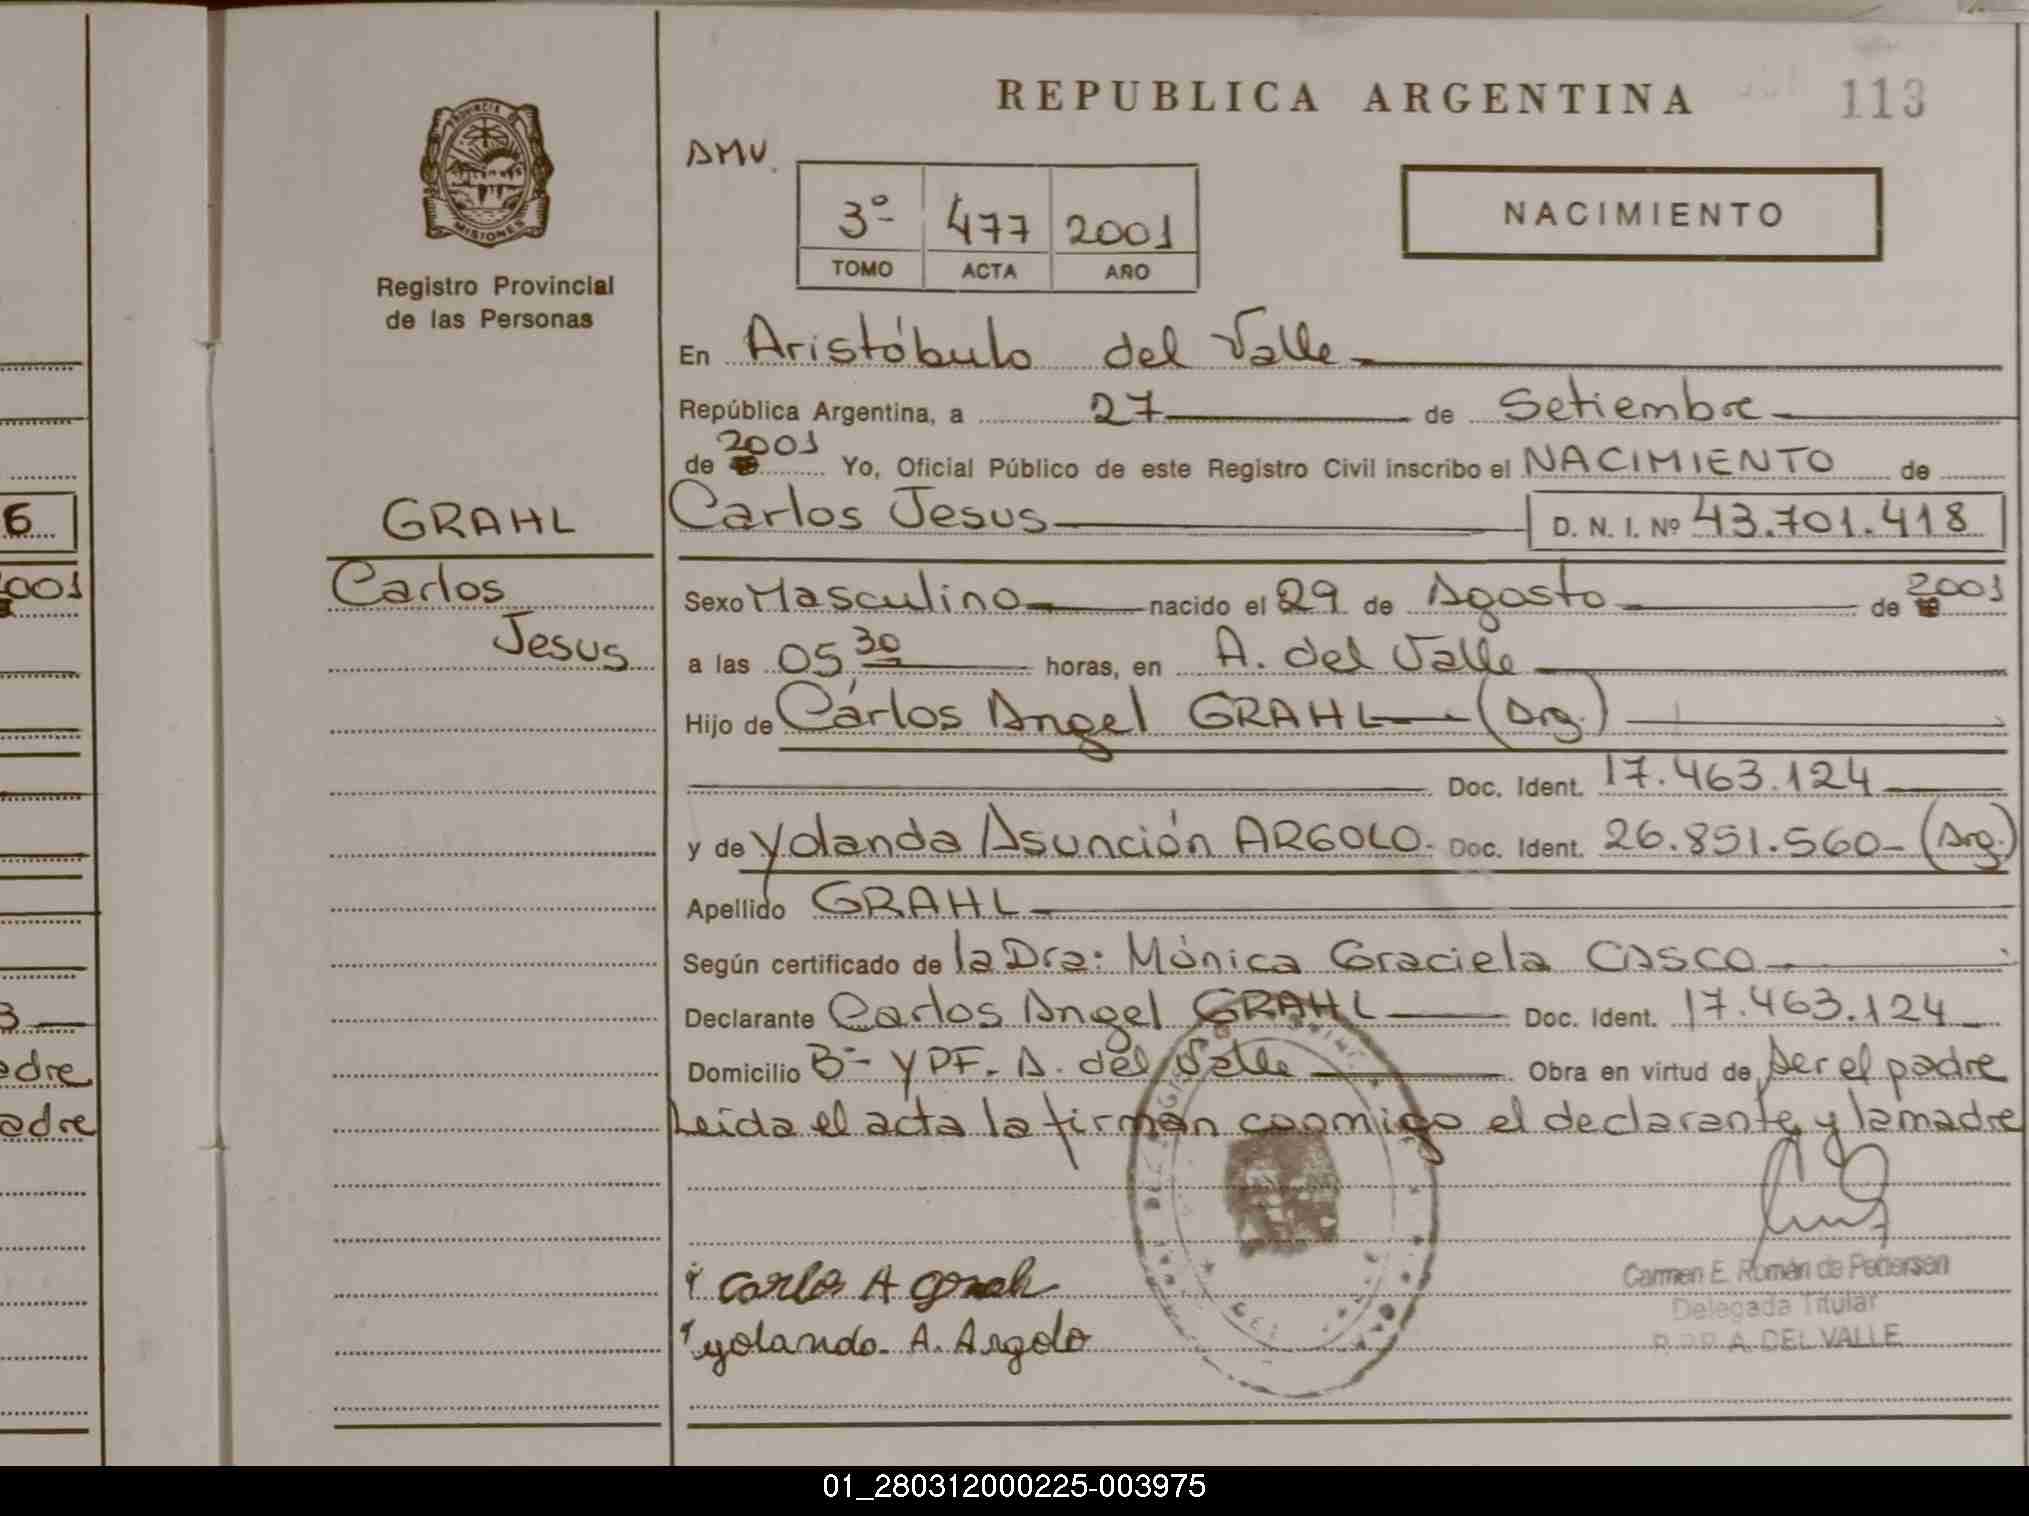 REPUBLICA ARGENTINA
113
PROVINCIA DE
MISIONES
Registro Provincial
de las Personas
AMV.
3º 477 2001
TOMO ACTA AÑO
NACIMIENTO
En Aristóbulo del Valle
República Argentina, a 27 de Setiembre
de 2001 Yo, Oficial Público de este Registro Civil inscribo el NACIMIENTO de
GRAHL
Carlos Jesus D. N. I. Nº 43.701.418
Carlos
Jesus
Sexo Masculino nacido el 29 de Agosto de 2001
a las 05 30 horas, en A. del Valle
Hijo de Carlos Angel GRAHL (Arg.)
Doc. Ident. 17.463.124
y de Yolanda Asunción ARGOLO. Doc. Ident. 26.851.560 (Arg.)
Apellido GRAHL
Según certificado de la Dra: Mónica Graciela CASCO
Declarante Carlos Angel GRAHL Doc. Ident. 17.463.124
Domicilio Bº YPF. A. del Valle Obra en virtud de ser el padre
Leída el acta la firman conmigo el declarante y la madre
Carlos A Grahl
Yolanda A. Argolo
Carmen E. Román de Pettersen
Delegada Titular
R.P.P. A. DEL VALLE
6
2001
3
adre
adre
01_280312000225-003975